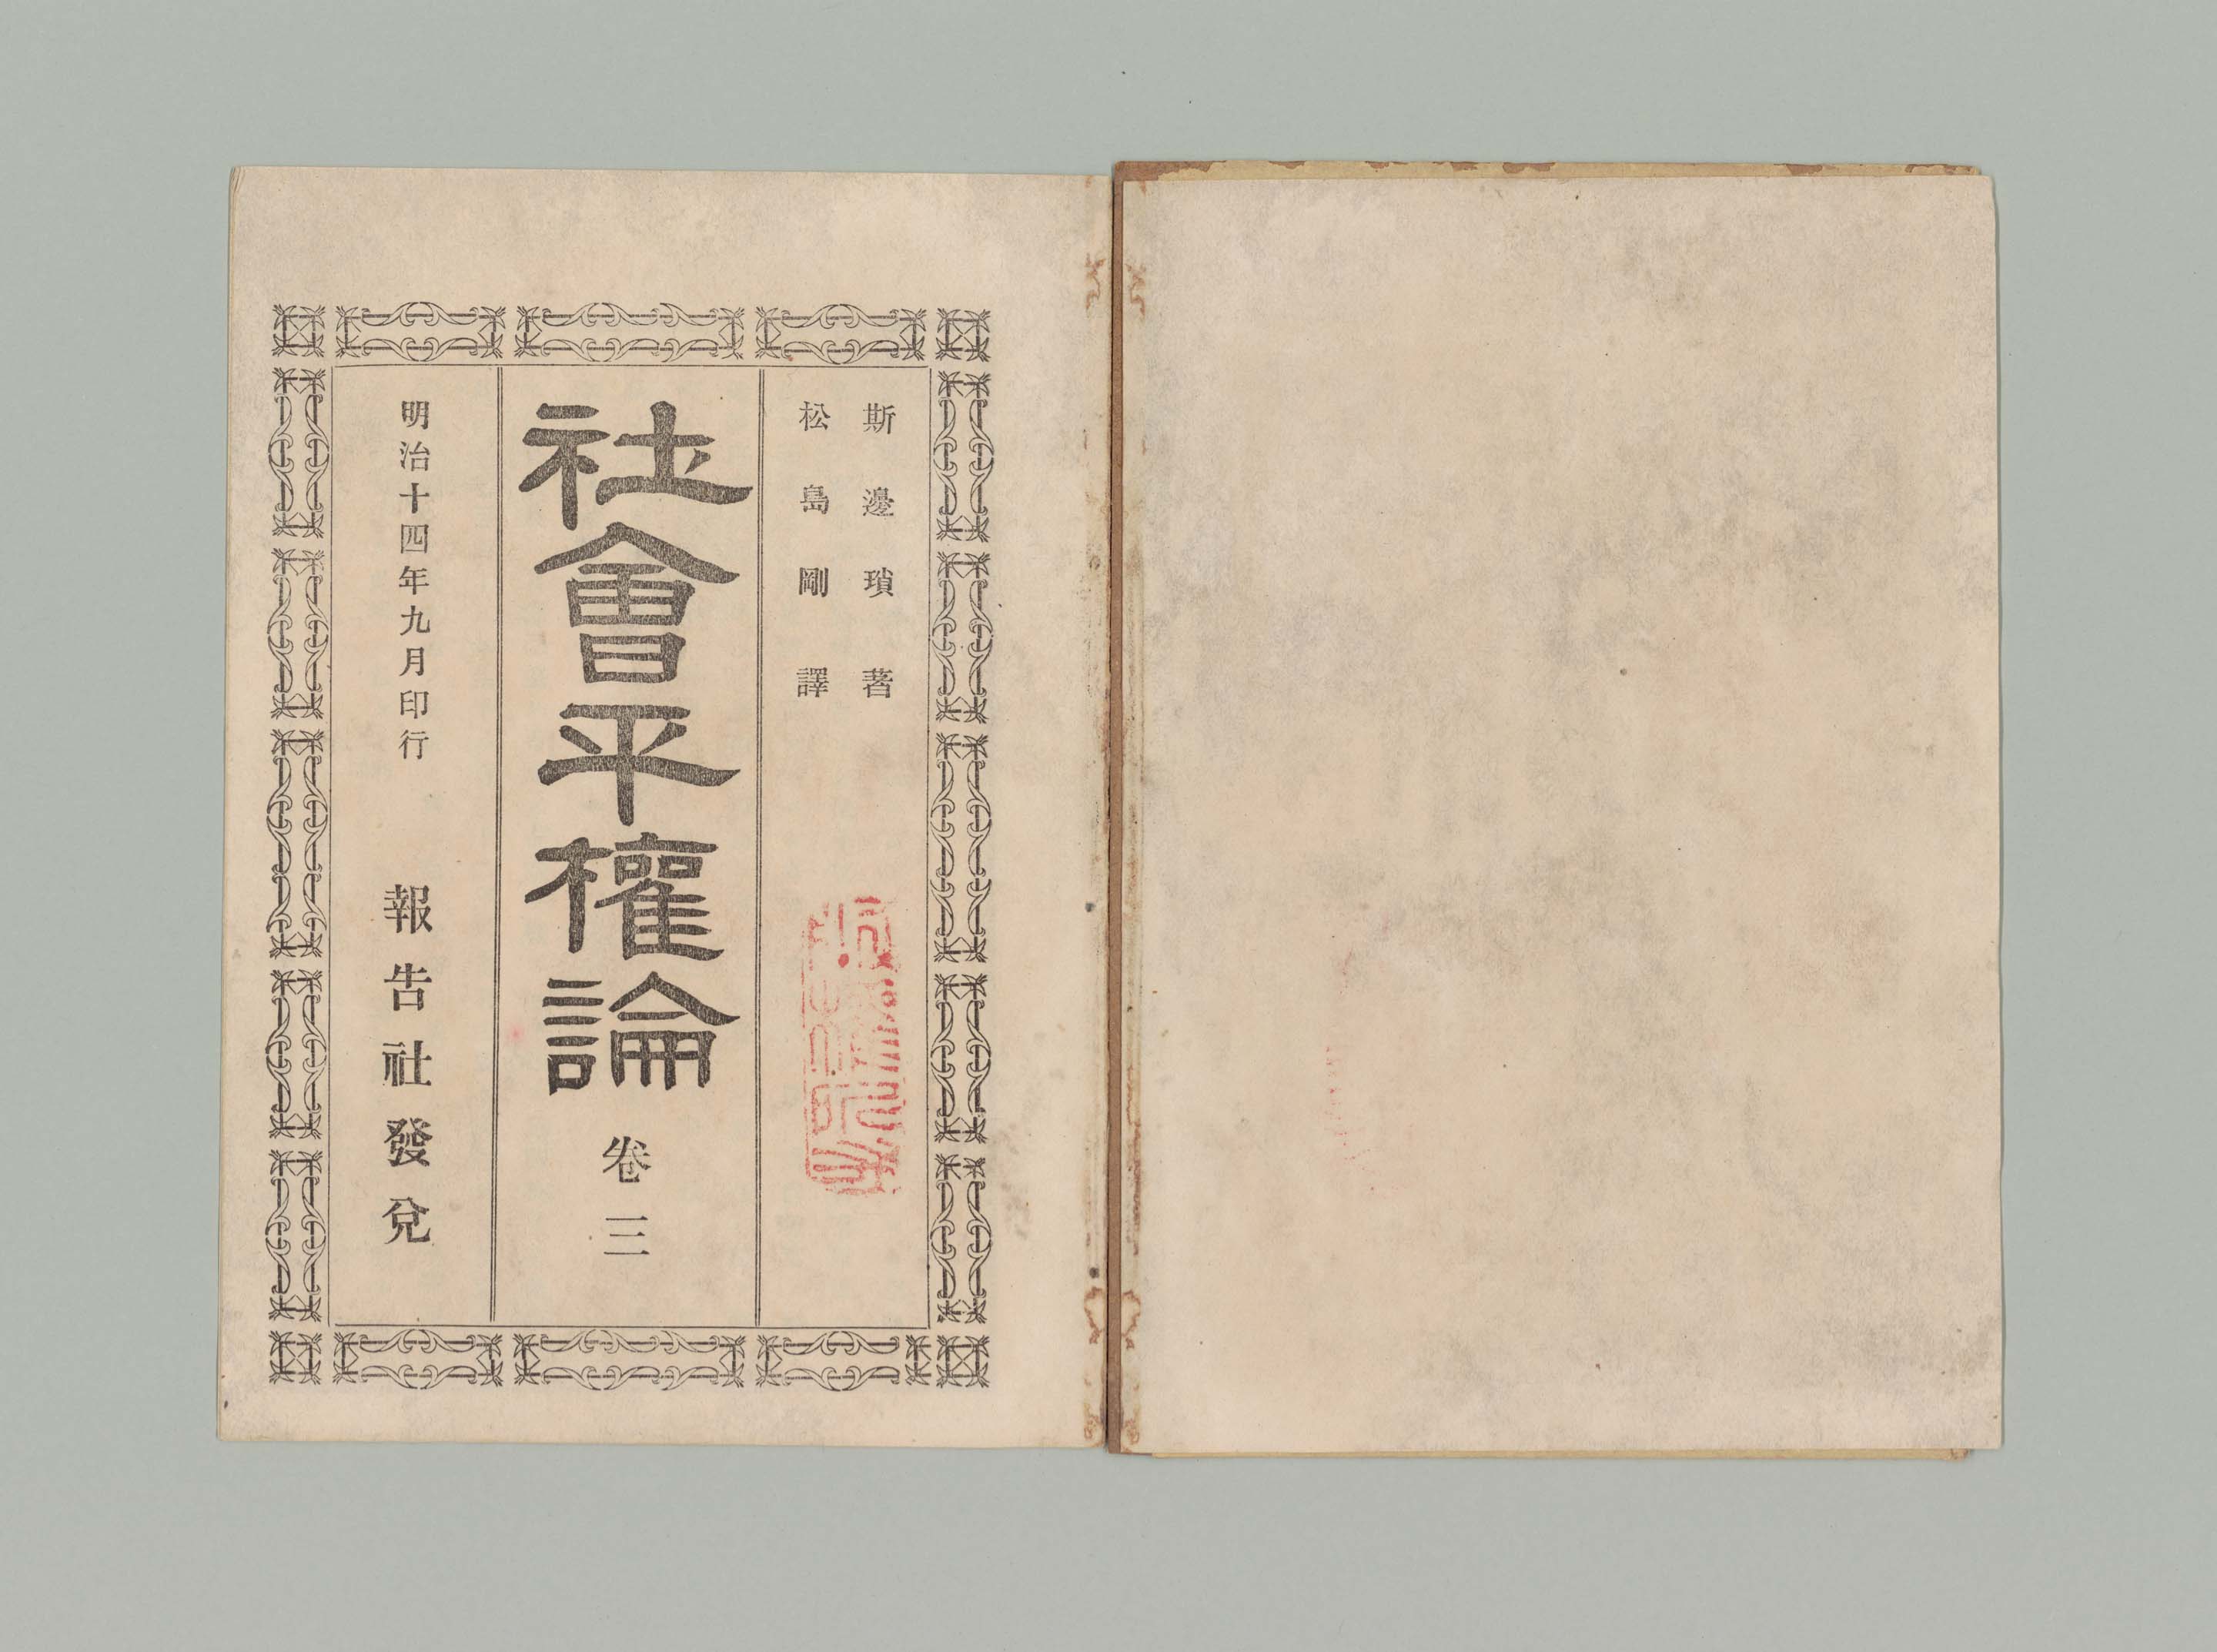 斯邊瑣著
松島剛譯
社會平權論 卷三
明治十四年九月印行 報告社發兌